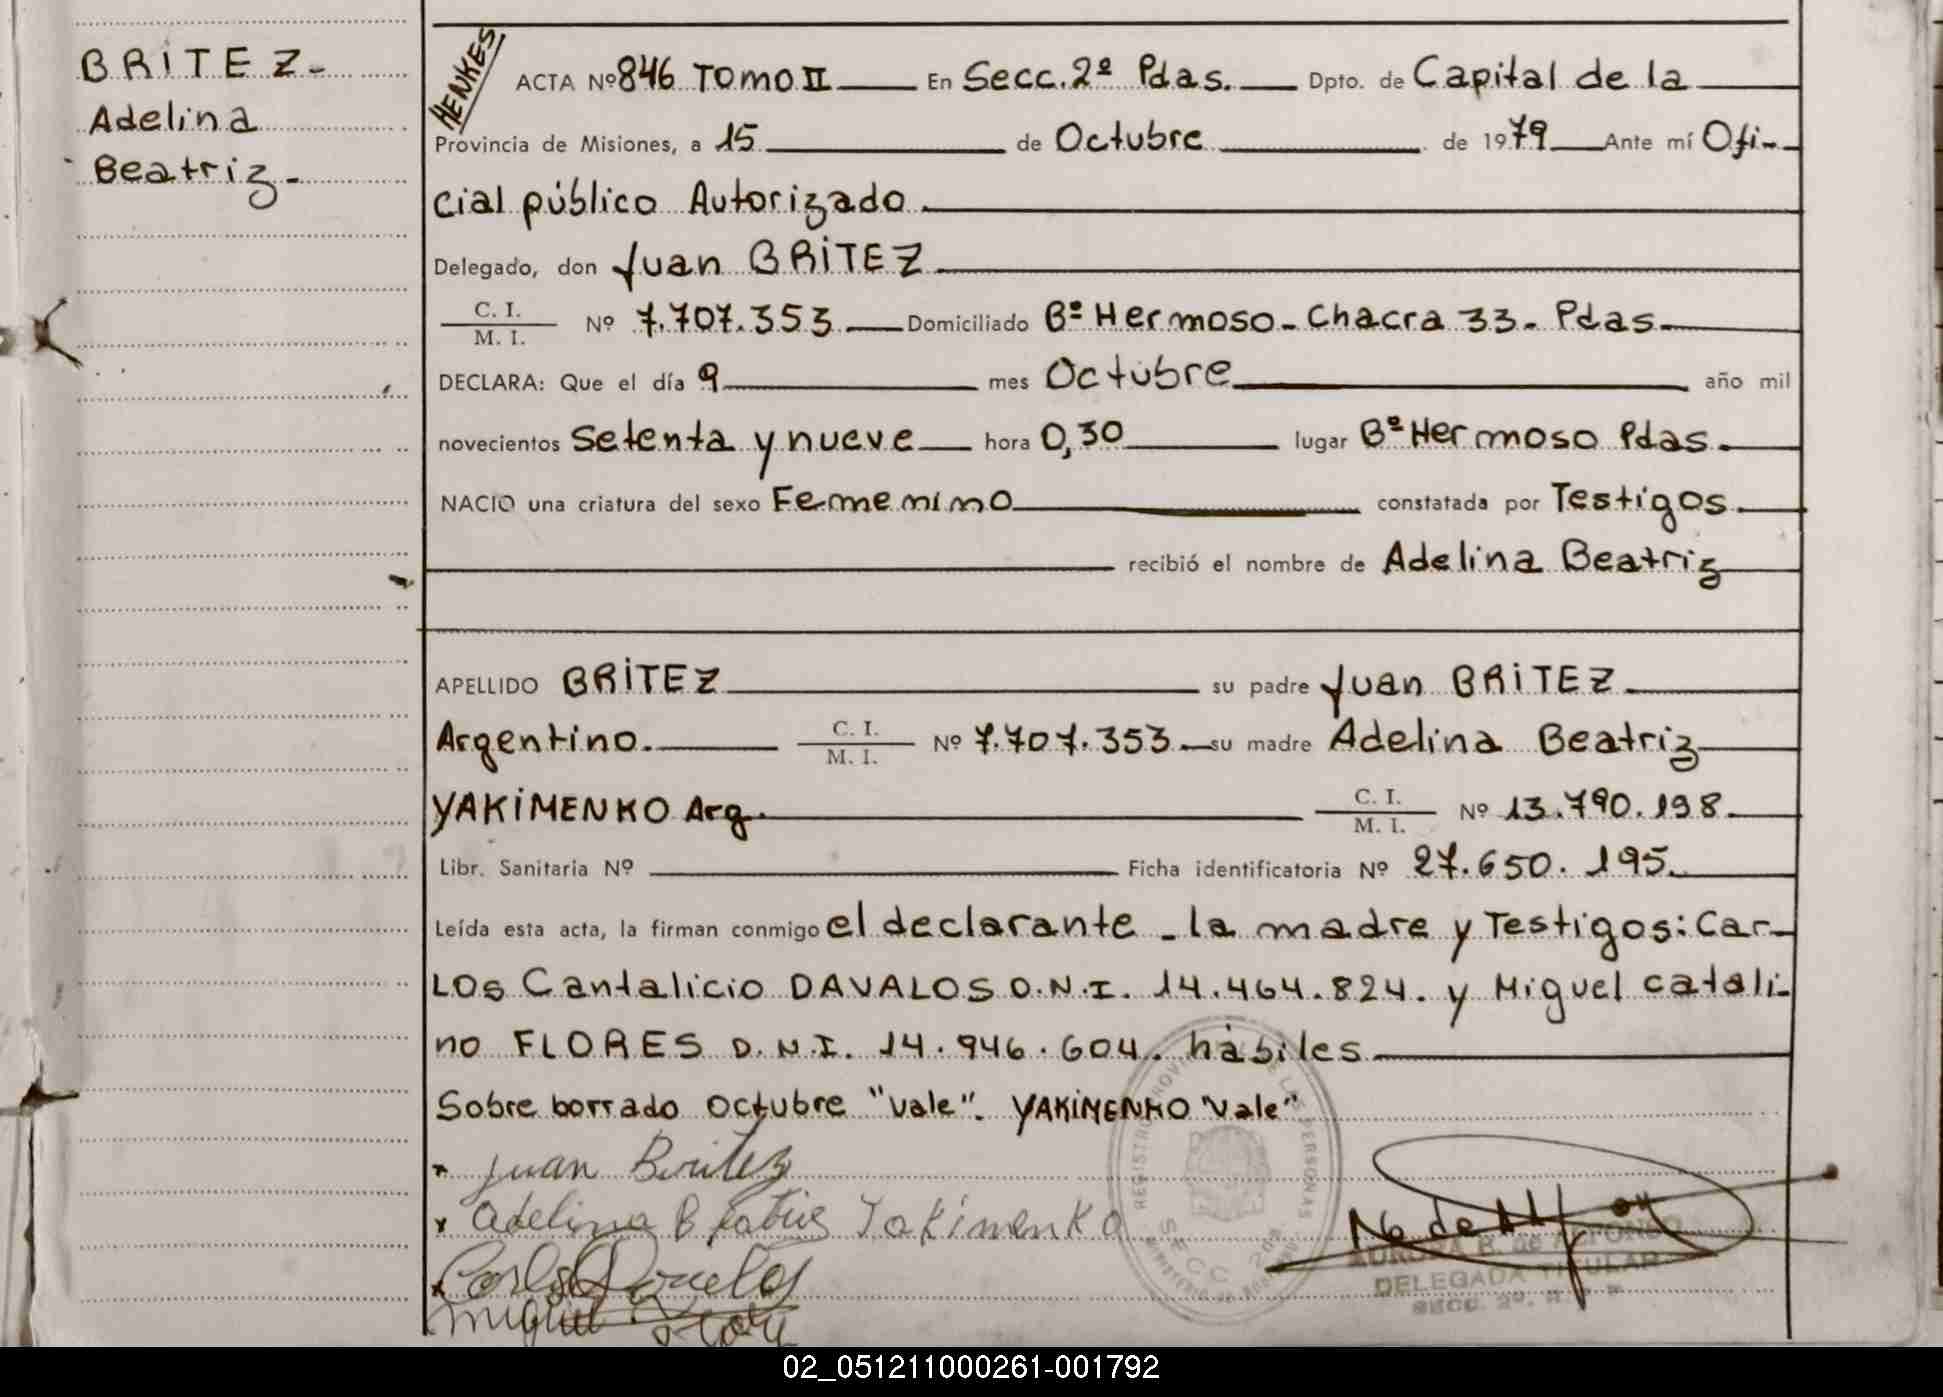 BRITEZ-
Adelina
Beatriz-
HENKES
ACTA Nº 846 TOMO II En Secc. 2ª Pdas. Dpto. de Capital de la
Provincia de Misiones, a 15 de Octubre de 1979 Ante mí Ofi-
cial público Autorizado
Delegado, don Juan BRITEZ
C. I.
M. I. Nº 7.707.353 Domiciliado Bº Hermoso- Chacra 33- Pdas
DECLARA: Que el día 9 mes Octubre año mil
novecientos Setenta y nueve hora 0,30 lugar Bº Hermoso Pdas
NACIO una criatura del sexo Femenino constatada por Testigos
recibió el nombre de Adelina Beatriz
APELLIDO BRITEZ su padre Juan BRITEZ
Argentino. C. I. M. I. Nº 7.707.353 su madre Adelina Beatriz
YAKIMENKO Arg. C. I. M. I. Nº 13.790.198
Libr. Sanitaria Nº Ficha identificatoria Nº 27.650.195
Leída esta acta, la firman conmigo el declarante - la madre y Testigos: Car-
los Cantalicio DAVALOS D.N.I. 14.464.824. y Miguel catali-
no FLORES D.N.I. 14.946.604. hábiles
Sobre borrado Octubre "vale". YAKIMENKO "vale"
Juan Britez
Adelina Beatriz Yakimenko
Carlos Davalos
Miguel Flores
REGISTRO PROVINCIAL DE LAS PERSONAS
SECC 2da
AURORA R. de ALFONSO
DELEGADA TITULAR
SECC. 2º.
02_051211000261-001792